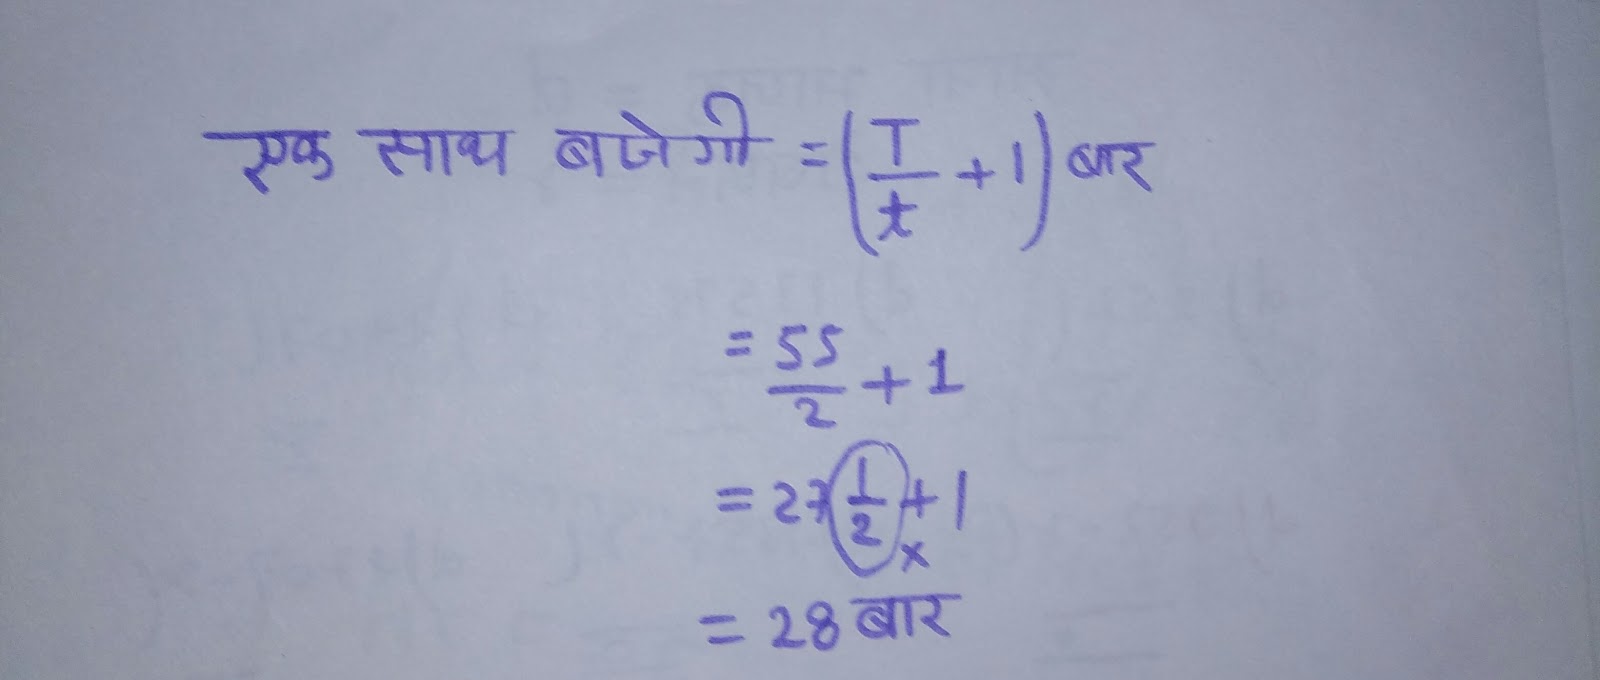 एक साथ बजेगी = (T/t + 1) बार
= 55/2 + 1
= 27 1/2 + 1
x
= 28 बार